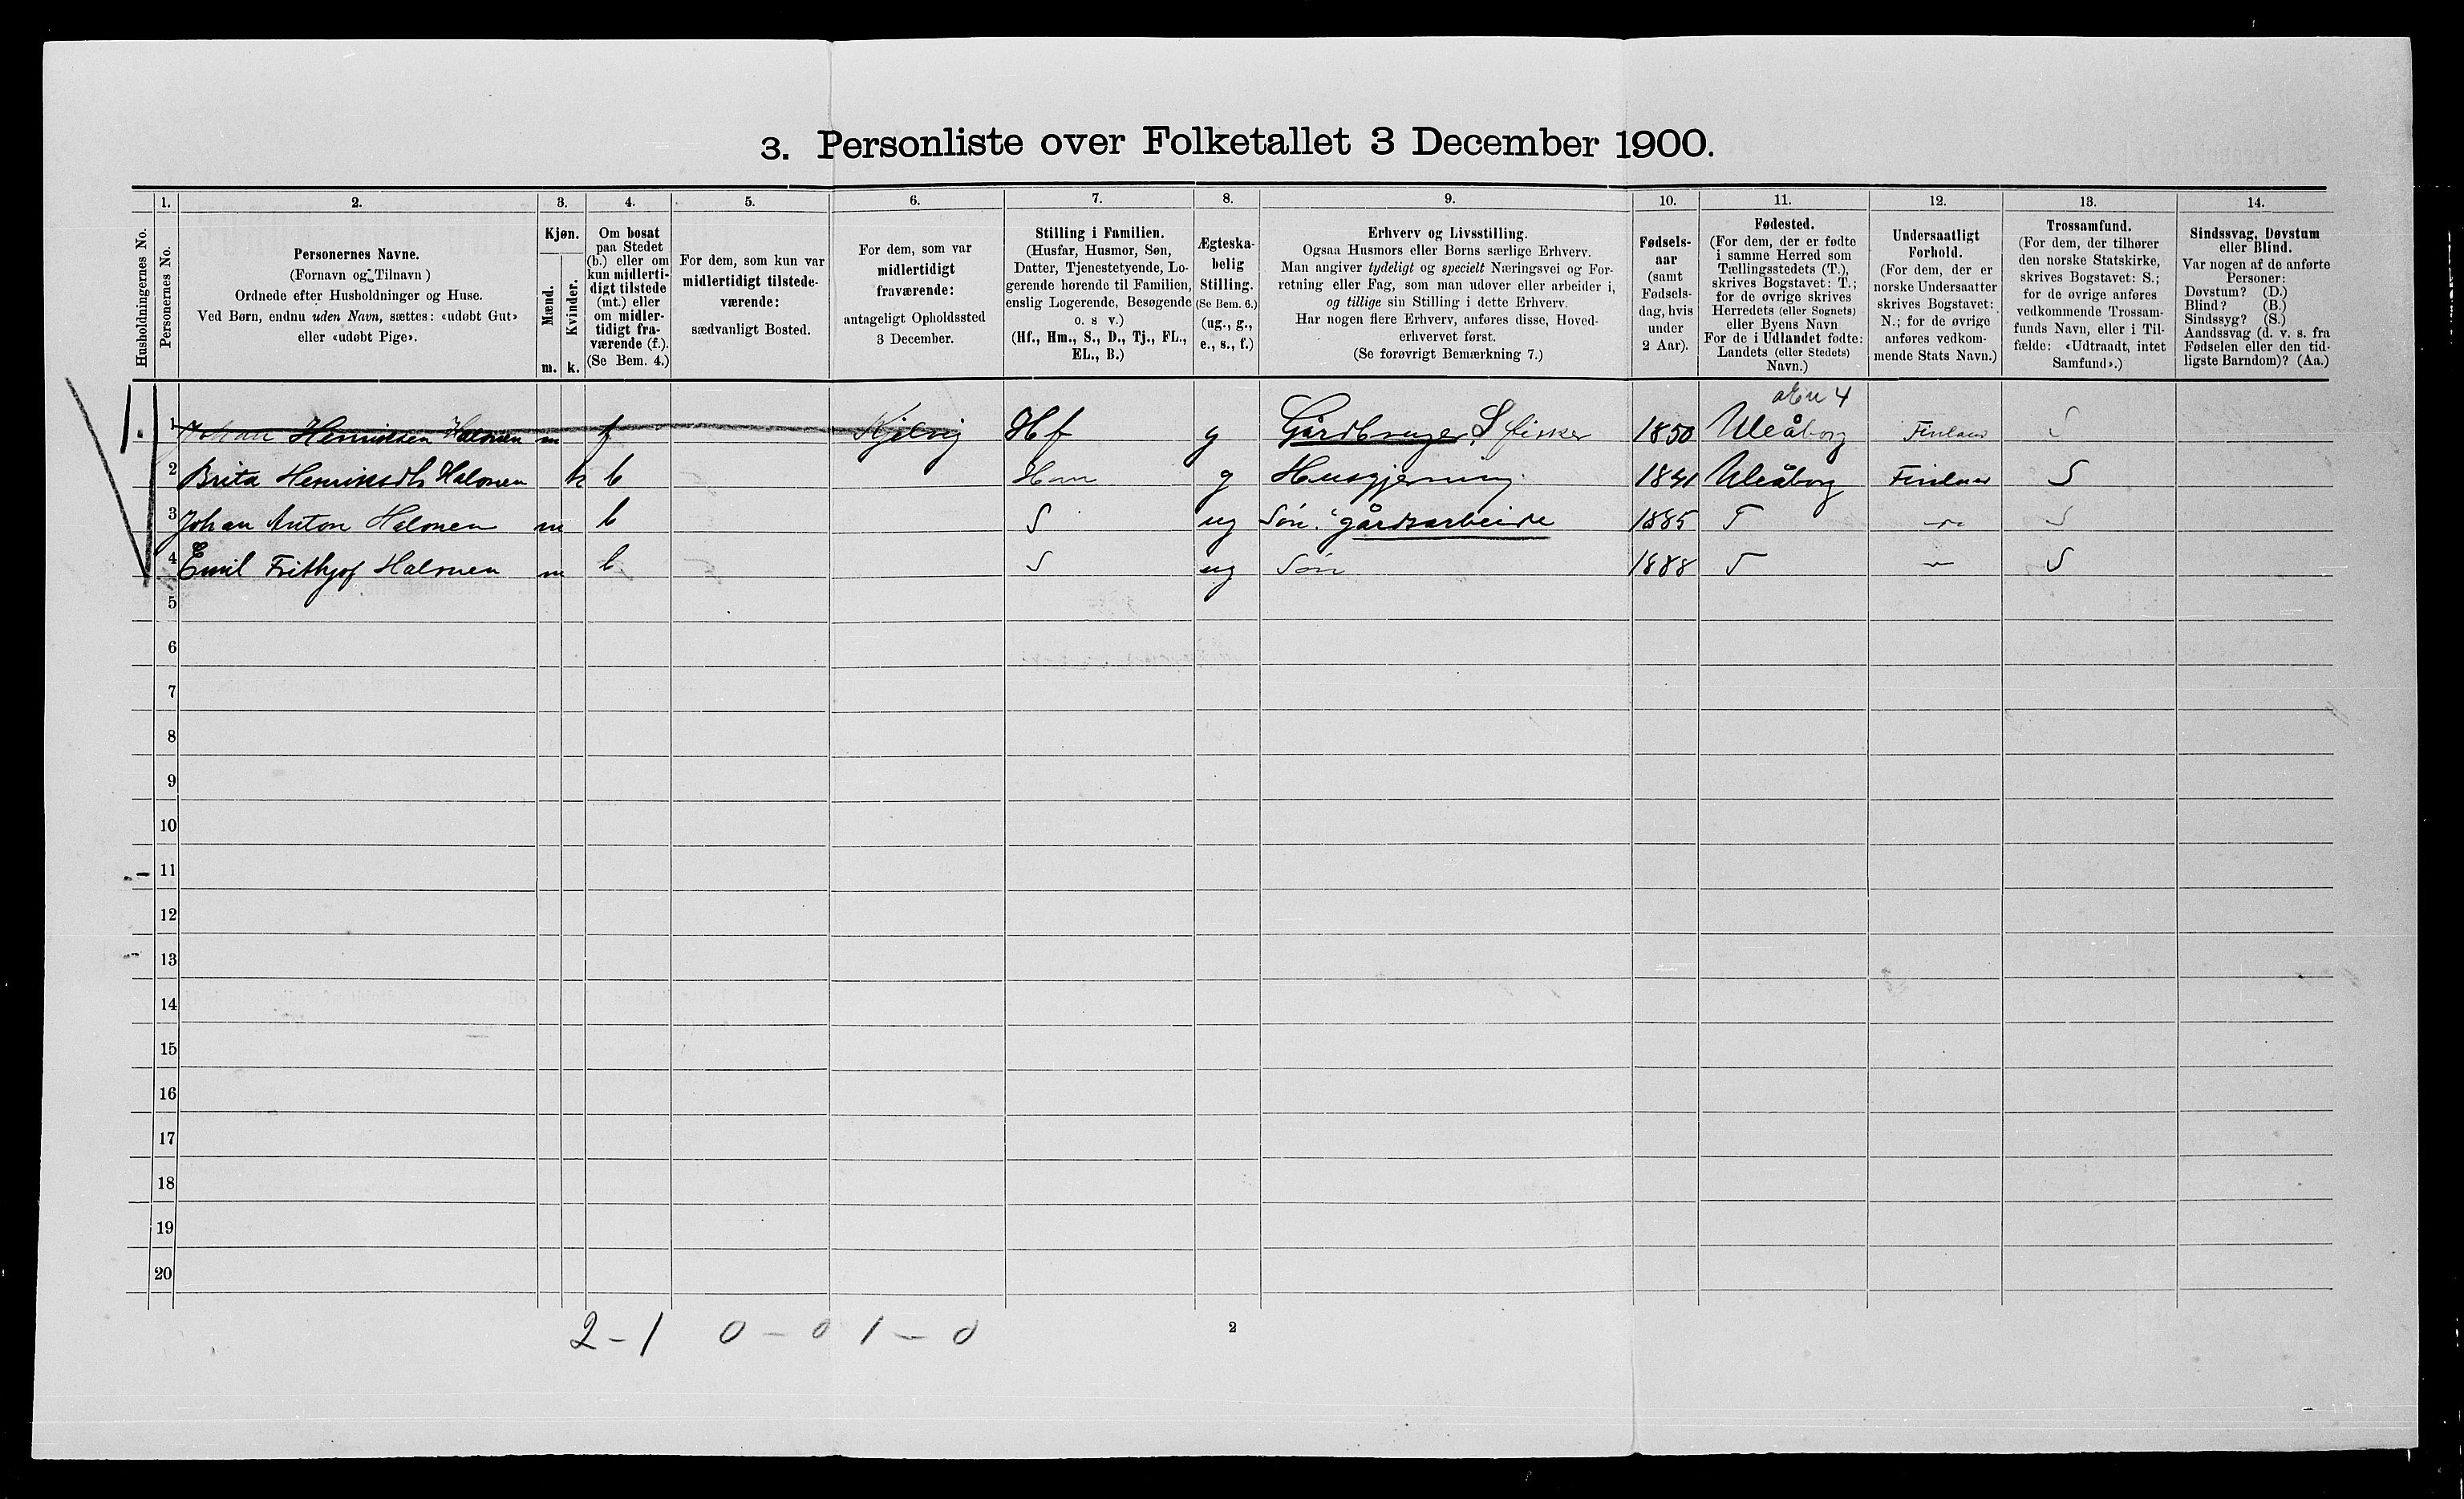 3. Personliste over Folketallet 3 December 1900.
Husholdningernes No.
1.
Personernes No.
2.
Personernes Navne.
(Fornavn og Tilnavn)
Ordnede efter Husholdninger og Huse.
Ved Børn, endnu uden Navn, sættes: «udøbt Gut»
eller «udøbt Pige».
3.
Kjøn.
Mænd.
Kvinder.
m. k.
4.
Om bosat
paa Stedet
(b.) eller om
kun midlerti-
digt tilstede
(mt.) eller
om midler-
tidigt fra-
værende (f.).
(Se Bem. 4.)
5.
For dem, som kun var
midlertidigt tilstede-
værende:
sædvanligt Bosted.
6.
For dem, som var
midlertidigt
fraværende:
antageligt Opholdssted
3 December.
7.
Stilling i Familien.
(Husfar, Husmor, Søn,
Datter, Tjenestetyende, Lo-
gerende hørende til Familien,
enslig Logerende, Besøgende
o. s v.)
(Hf., Hm., S., D., Tj., FL.,
EL., B.)
8.
Ægteska-
belig
Stilling.
(Se Bem. 6.)
(ug., g.,
e., s., f.)
9.
Erhverv og Livsstilling.
Ogsaa Husmors eller Børns særlige Erhverv.
Man angiver tydeligt og specielt Næringsvei og For-
retning eller Fag, som man udøver eller arbeider i,
og tillige sin Stilling i dette Erhverv.
Har nogen flere Erhverv, anføres disse, Hoved-
erhvervet først.
(Se forøvrigt Bemærkning 7.)
10.
Fødsels-
aar
(samt
Fødsels-
dag, hvis
under
2 Aar).
11.
Fødested.
(For dem, der er fødte
i samme Herred som
Tællingsstedets (T.),
skrives Bogstavet: T.;
for de øvrige skrives
Herredets (eller Sognets)
eller Byens Navn
For de i Udlandet fødte:
Landets (eller Stedets)
Navn.)
12.
Undersaatligt
Forhold.
(For dem, der er
norske Undersaatter
skrives Bogstavet:
N.; for de øvrige
anføres vedkom-
mende Stats Navn.)
13.
Trossamfund.
(For dem, der tilhører
den norske Statskirke,
skrives Bogstavet: S.;
for de øvrige anføres
vedkommende Trossam-
funds Navn, eller i Til-
fælde: «Udtraadt, intet
Samfund».)
14.
Sindssvag, Døvstum
eller Blind.
Var nogen af de anførte
Personer:
Døvstum? (D.)
Blind? (B.)
Sindssyg? (S.)
Aandssvag (d. v. s. fra
Fødselen eller den tid-
ligste Barndom)? (Aa.)
1. 1 Johan Henriksen Halonen m f Kjelvig Hf g Gårdbruger, S fisker 1850 Uleåborg Finland S
2 Brita Henriksdt Halonen k b Hm g Husgjerning 1841 Uleåborg Finland S
3 Johan Anton Halonen m b S ug Søn. gårdsarbeide 1885 T S
4 Emil Frithjof Halonen m b S ug Søn 1888 T S
5
6
7
8
9
10
11
12
13
14
15
16
17
18
19
20
2-1 0-0 1-0
2